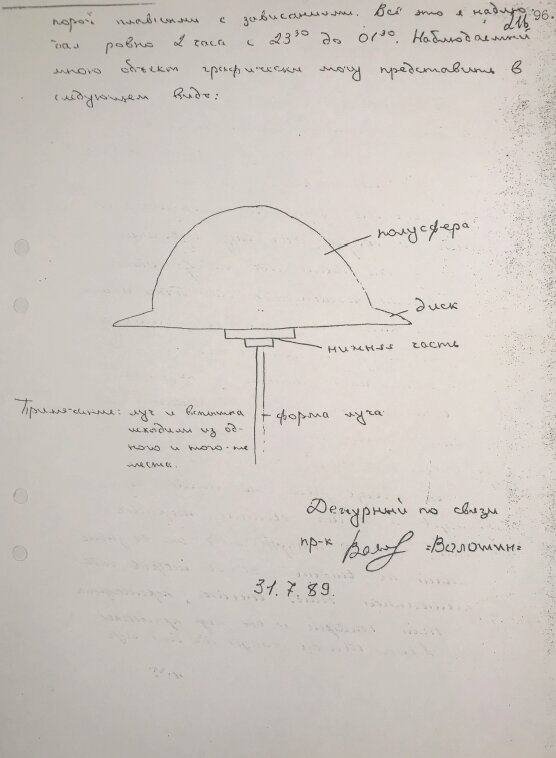 порой плавными с зависаниями. Всё это я наблю-
дал ровно 2 часа с 23³⁰ до 01³⁰. Наблюдаемый
мною объект графически могу представить в
следующем виде:
216
96.
полусфера
диск
нижняя часть
форма луча
Примечание: луч и вспышка
исходили из од-
ного и того-же
места.
Дежурный по связи
пр-к «Волошин»
31.7.89.